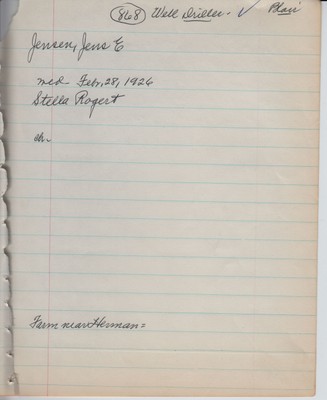 868 Well Driller. ✓ Blair
Jensen, Jens E
md. Febr, 28, 1926
Stella Rogert
ch-
Farm near Herman=